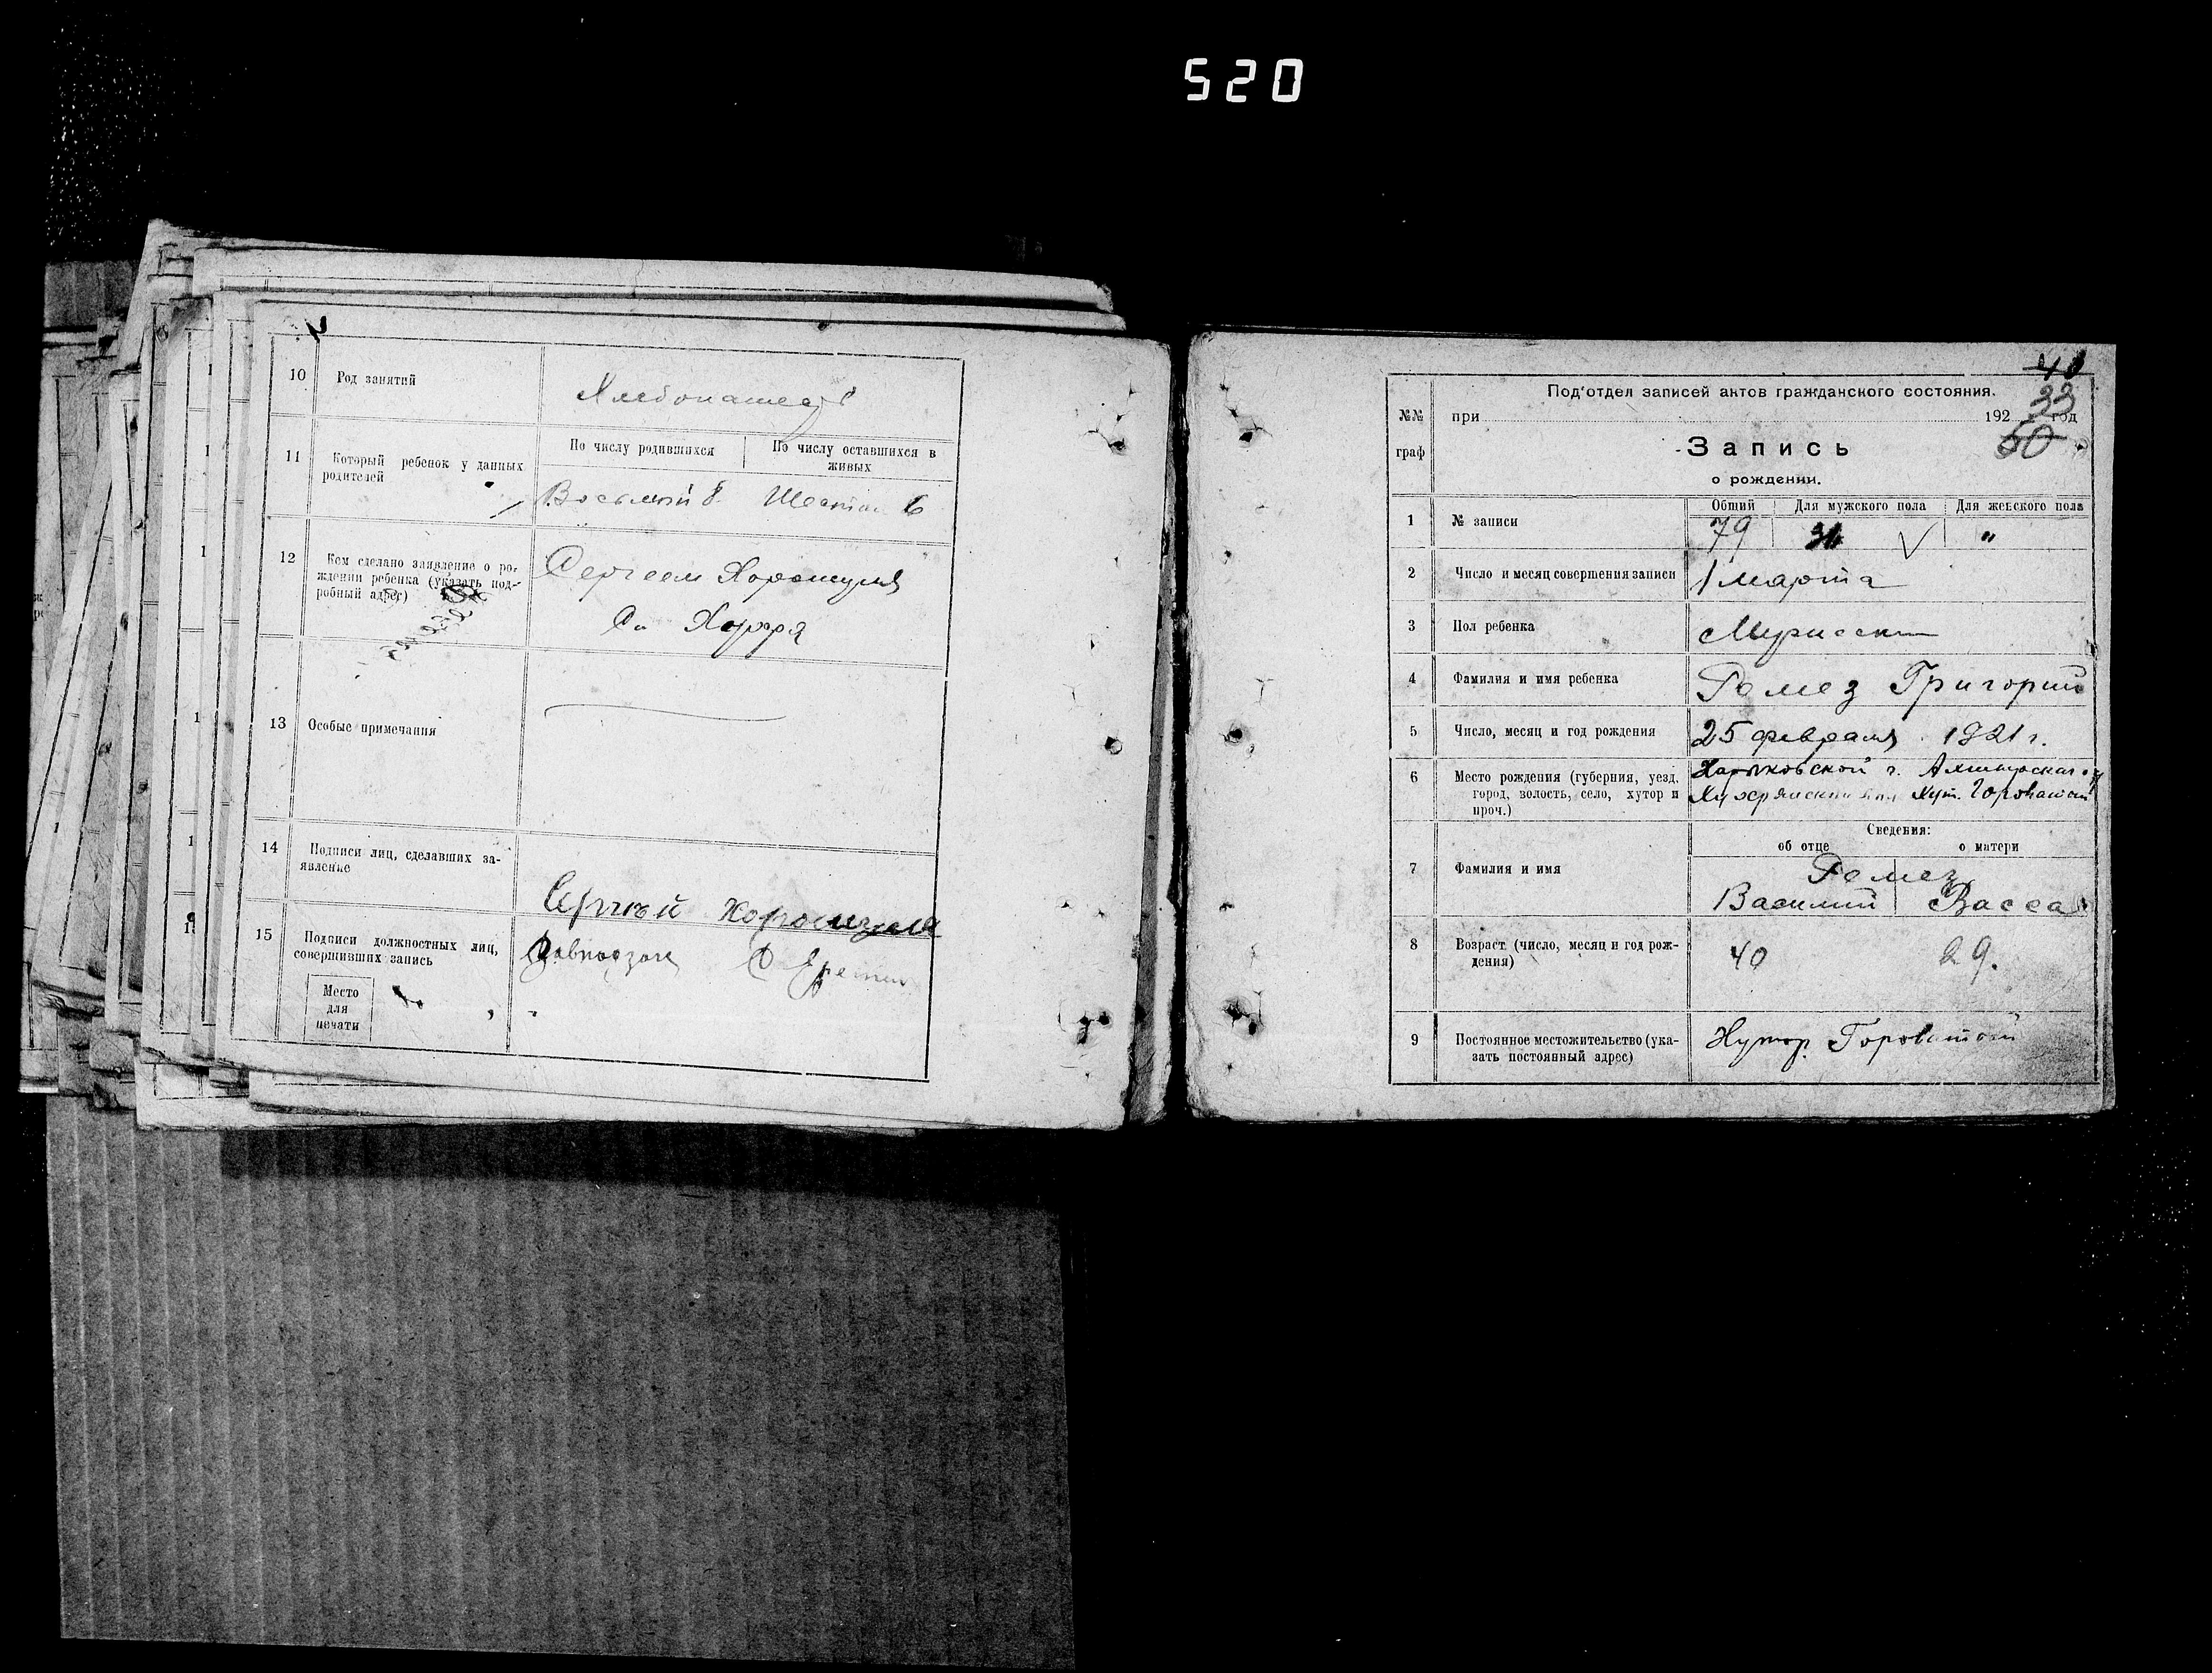 520
10 Род занятий Хлебопашец
11 Который ребенок у данных родителей
По числу родившихся По числу оставшихся в живых
Восьмой 8. Шестой 6
12 Кем сделано заявление о рождении ребенка (указать подробный адрес)
Сергеем
13 Особые примечания
14 Подписи лиц, сделавших заявление
15 Подписи должностных лиц, совершивших запись
Место
для
печати
40
33
60
Под'отдел записей актов гражданского состояния.
№№ при 192 год
граф Запись
о рождении.
Общий Для мужского пола Для женского пола
1 № записи 79 "
2 Число и месяц совершения записи 1 марта
3 Пол ребенка Мужской
4 Фамилия и имя ребенка Ремез Григорий
5 Число, месяц и год рождения 25 февраля 1921 г.
6 Место рождения (губерния, уезд, город, волость, село, хутор и проч.)
Харьковской г.
Хут.
Сведения:
об отце о матери
7 Фамилия и имя Ремез
Василий Васса
8 Возраст (число, месяц и год рождения) 40 29.
9 Постоянное местожительство (указать постоянный адрес) Хутор